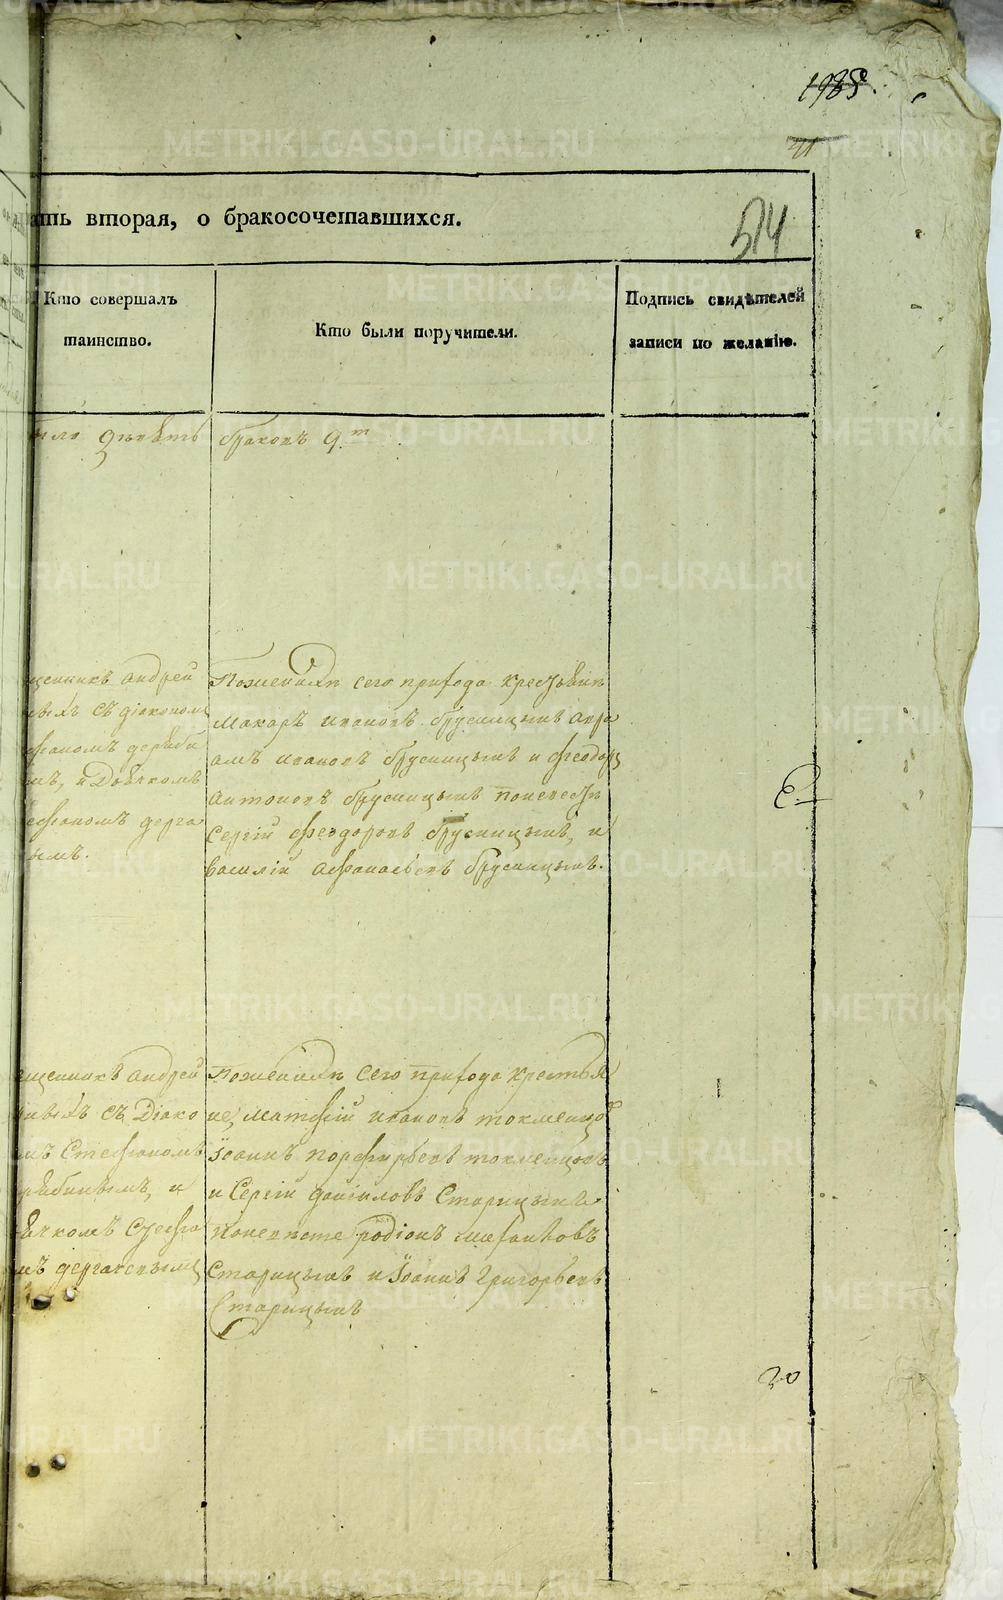 1985.
21
ать вторая, о бракосочетавшихся.
514
Кто совершалъ
таинство.
Кто были поручители.
Подпись свидѣтелей
записи по желанію.
браковъ 9.т
щенникъ Андрей
съ діакономъ
ефаномъ
мъ, и Дьячкомъ
ефаномъ дерга
ымъ.
По женихѣ сего прихода крестьянъ
Макаръ Ивановъ Брусницынъ Авра
амъ Ивановъ Брусницынъ и Феодоръ
Антоновъ Брусницынъ по невестѣ
Сергій Феодоровъ Брусницынъ, и
Василій Афанасьевъ Брусницынъ.
ященникъ Андрей
съ Діако
мъ Стефаномъ
рябинымъ, и
ячкомъ Стефа
мъ
По женихѣ сего прихода крестья
не, Матфій Ивановъ Токменцовъ
Іоаннъ Порфирьевъ Токменцовъ
и Сергій Даніиловъ Старицынъ
по невесте Родіонъ
Старицынъ и Іоаннъ Григорьевъ
Старицынъ
20
METRIKI.GASO-URAL.RU